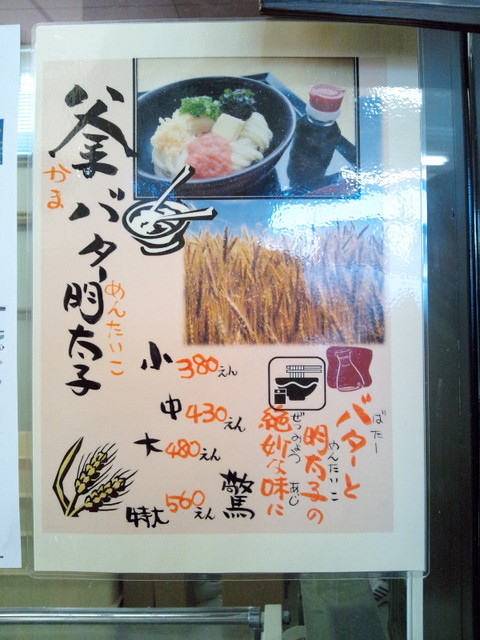 釜バター明太子
かま
めんたいこ
小 380えん
中 430えん
大 480えん
特大 560えん
バターと
ばたー
明太子の
めんたいこ
絶妙な味に
ぜつみょう あじ
驚